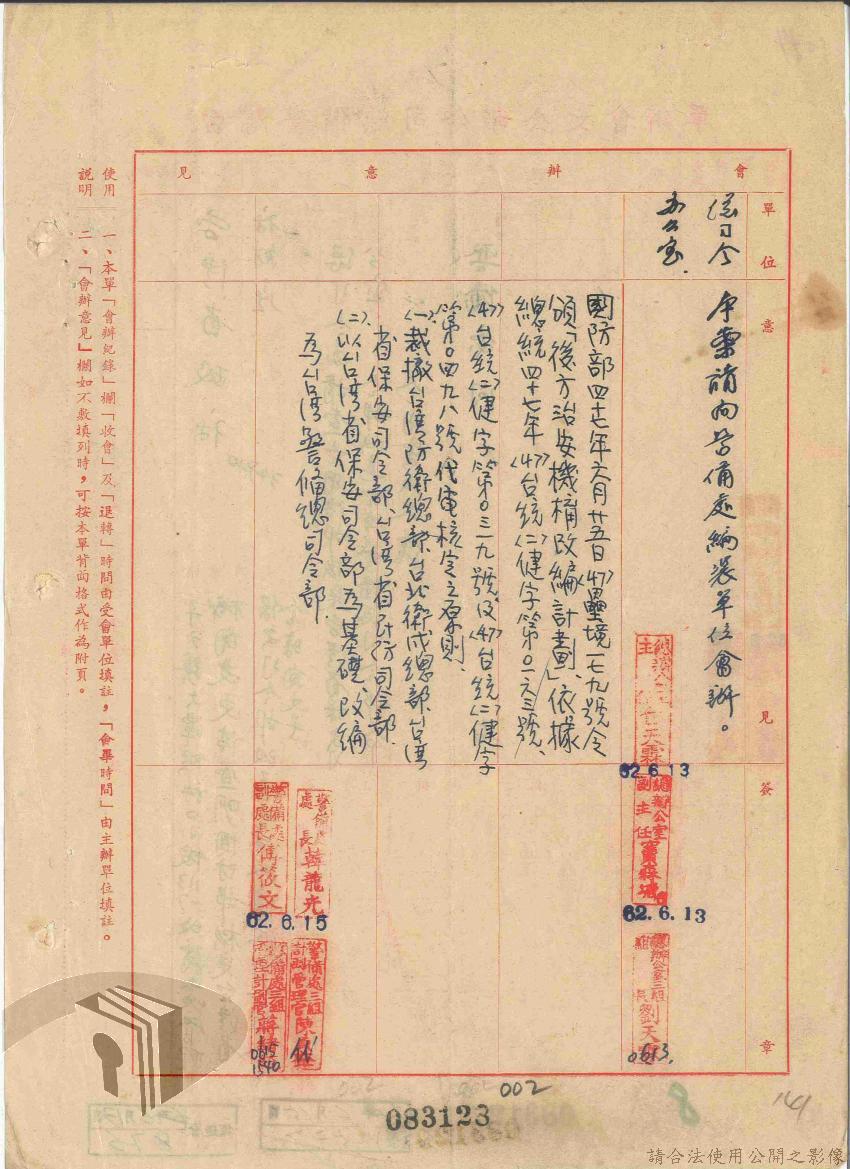 會辦意見
單位
意見
簽章
總司令
辦公室
本案請向警備處編裝單位會辦。
國防部四十七年六月廿五日(47)壘境一七九號令
頒「後方治安機構改編計劃」依據
總統四十七年(47)台統(二)健字第〇二六三號、
(47)台統(二)健字第〇三一九號及(47)台統(二)健字
第〇四九八號代電核定之原則。
(一)裁撤台灣防衛總部、台北衛戍總部、台灣
省保安司令部、台灣省民防司令部。
(二)以台灣省保安司令部為基礎、改編
為台灣警備總司令部。
天霖
62.6.13
總辦公室
副主任
62.6.13
總辦公室三組
組長劉天
0613
警備處
處長韓龍光
警備處
副處長傅筱文
62.6.15
警備處三組
計劃管理官陳
警備處三組
蔣
0615
1540
使用說明
一、本單「會辦紀錄」欄「收會」及「退轉」時間由受會單位填註，「會畢時間」由主辦單位填註。
二、「會辦意見」欄如不敷填列時，可按本單背面格式作為附頁。
002
083123
8
141
請合法使用公開之影像